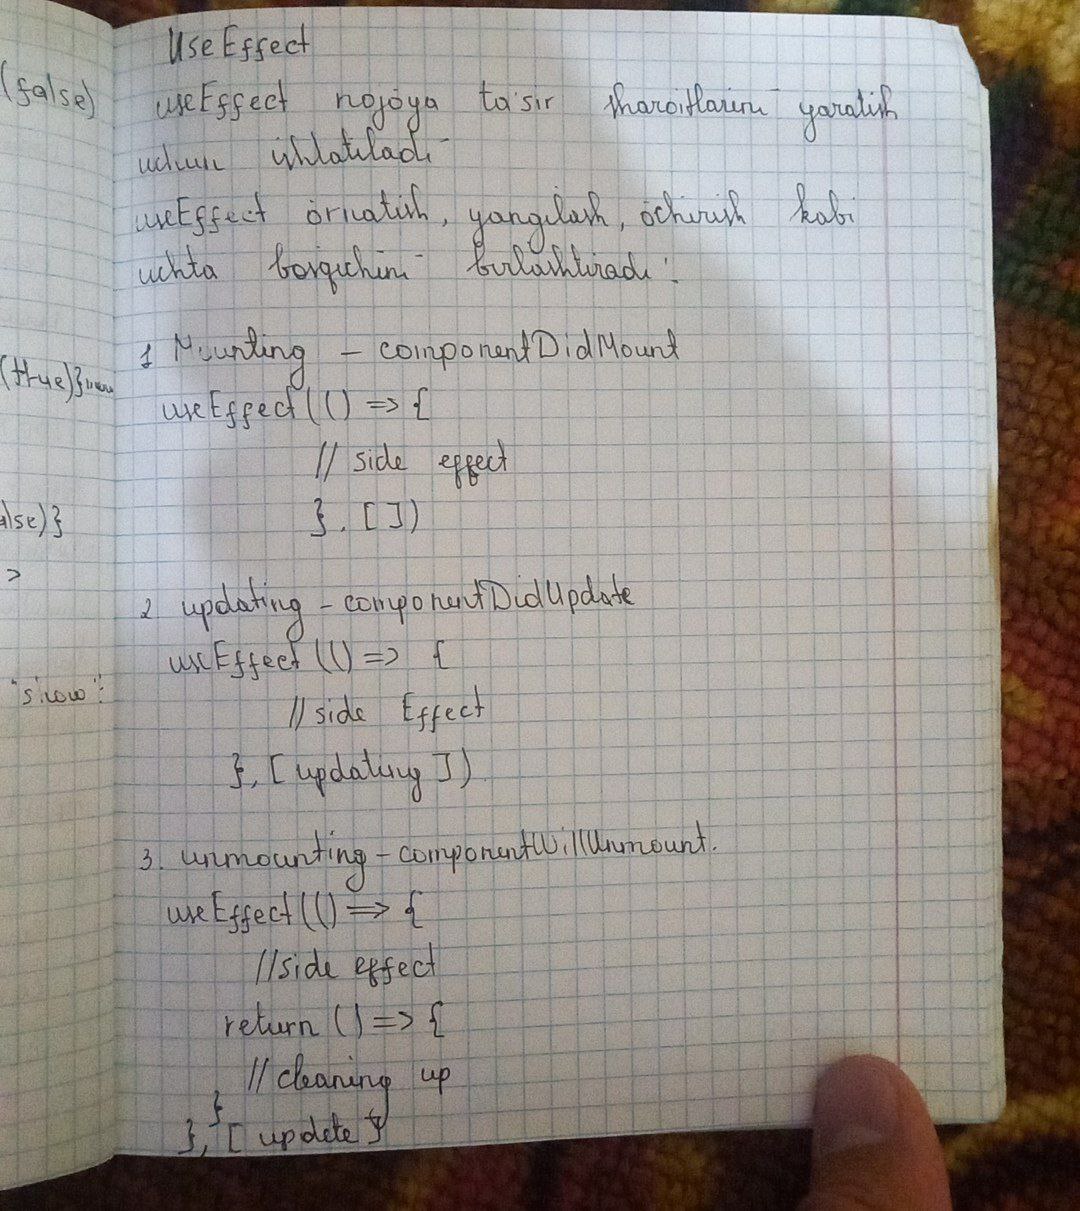 UseEffect
useEffect nojoya ta'sir sharoitlarini yaratish
uchun ishlatiladi
useEffect o'rnatish, yangilash, o'chirish kabi
uchta bosqichini birlashtiradi:
1 Mounting - componentDidMount
useEffect(() => {
// side effect
}, [])
2 updating - componentDidUpdate
useEffect(() => {
// side Effect
}, [updating])
3. unmounting - componentWillUnmount.
useEffect(() => {
//side effect
return () => {
// cleaning up
}
}, [updete }
(false)
(true)}
alse)}
>